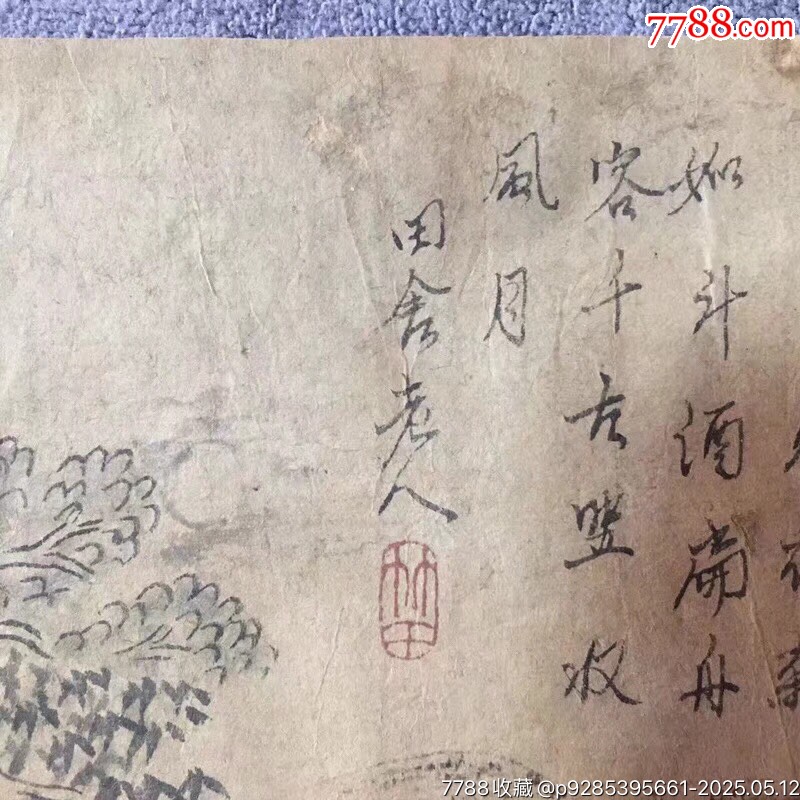 如斗酒扁舟
客千古收
風月
田舍老人
竹田
7788.com
7788收藏 @p9285395661-2025.05.12